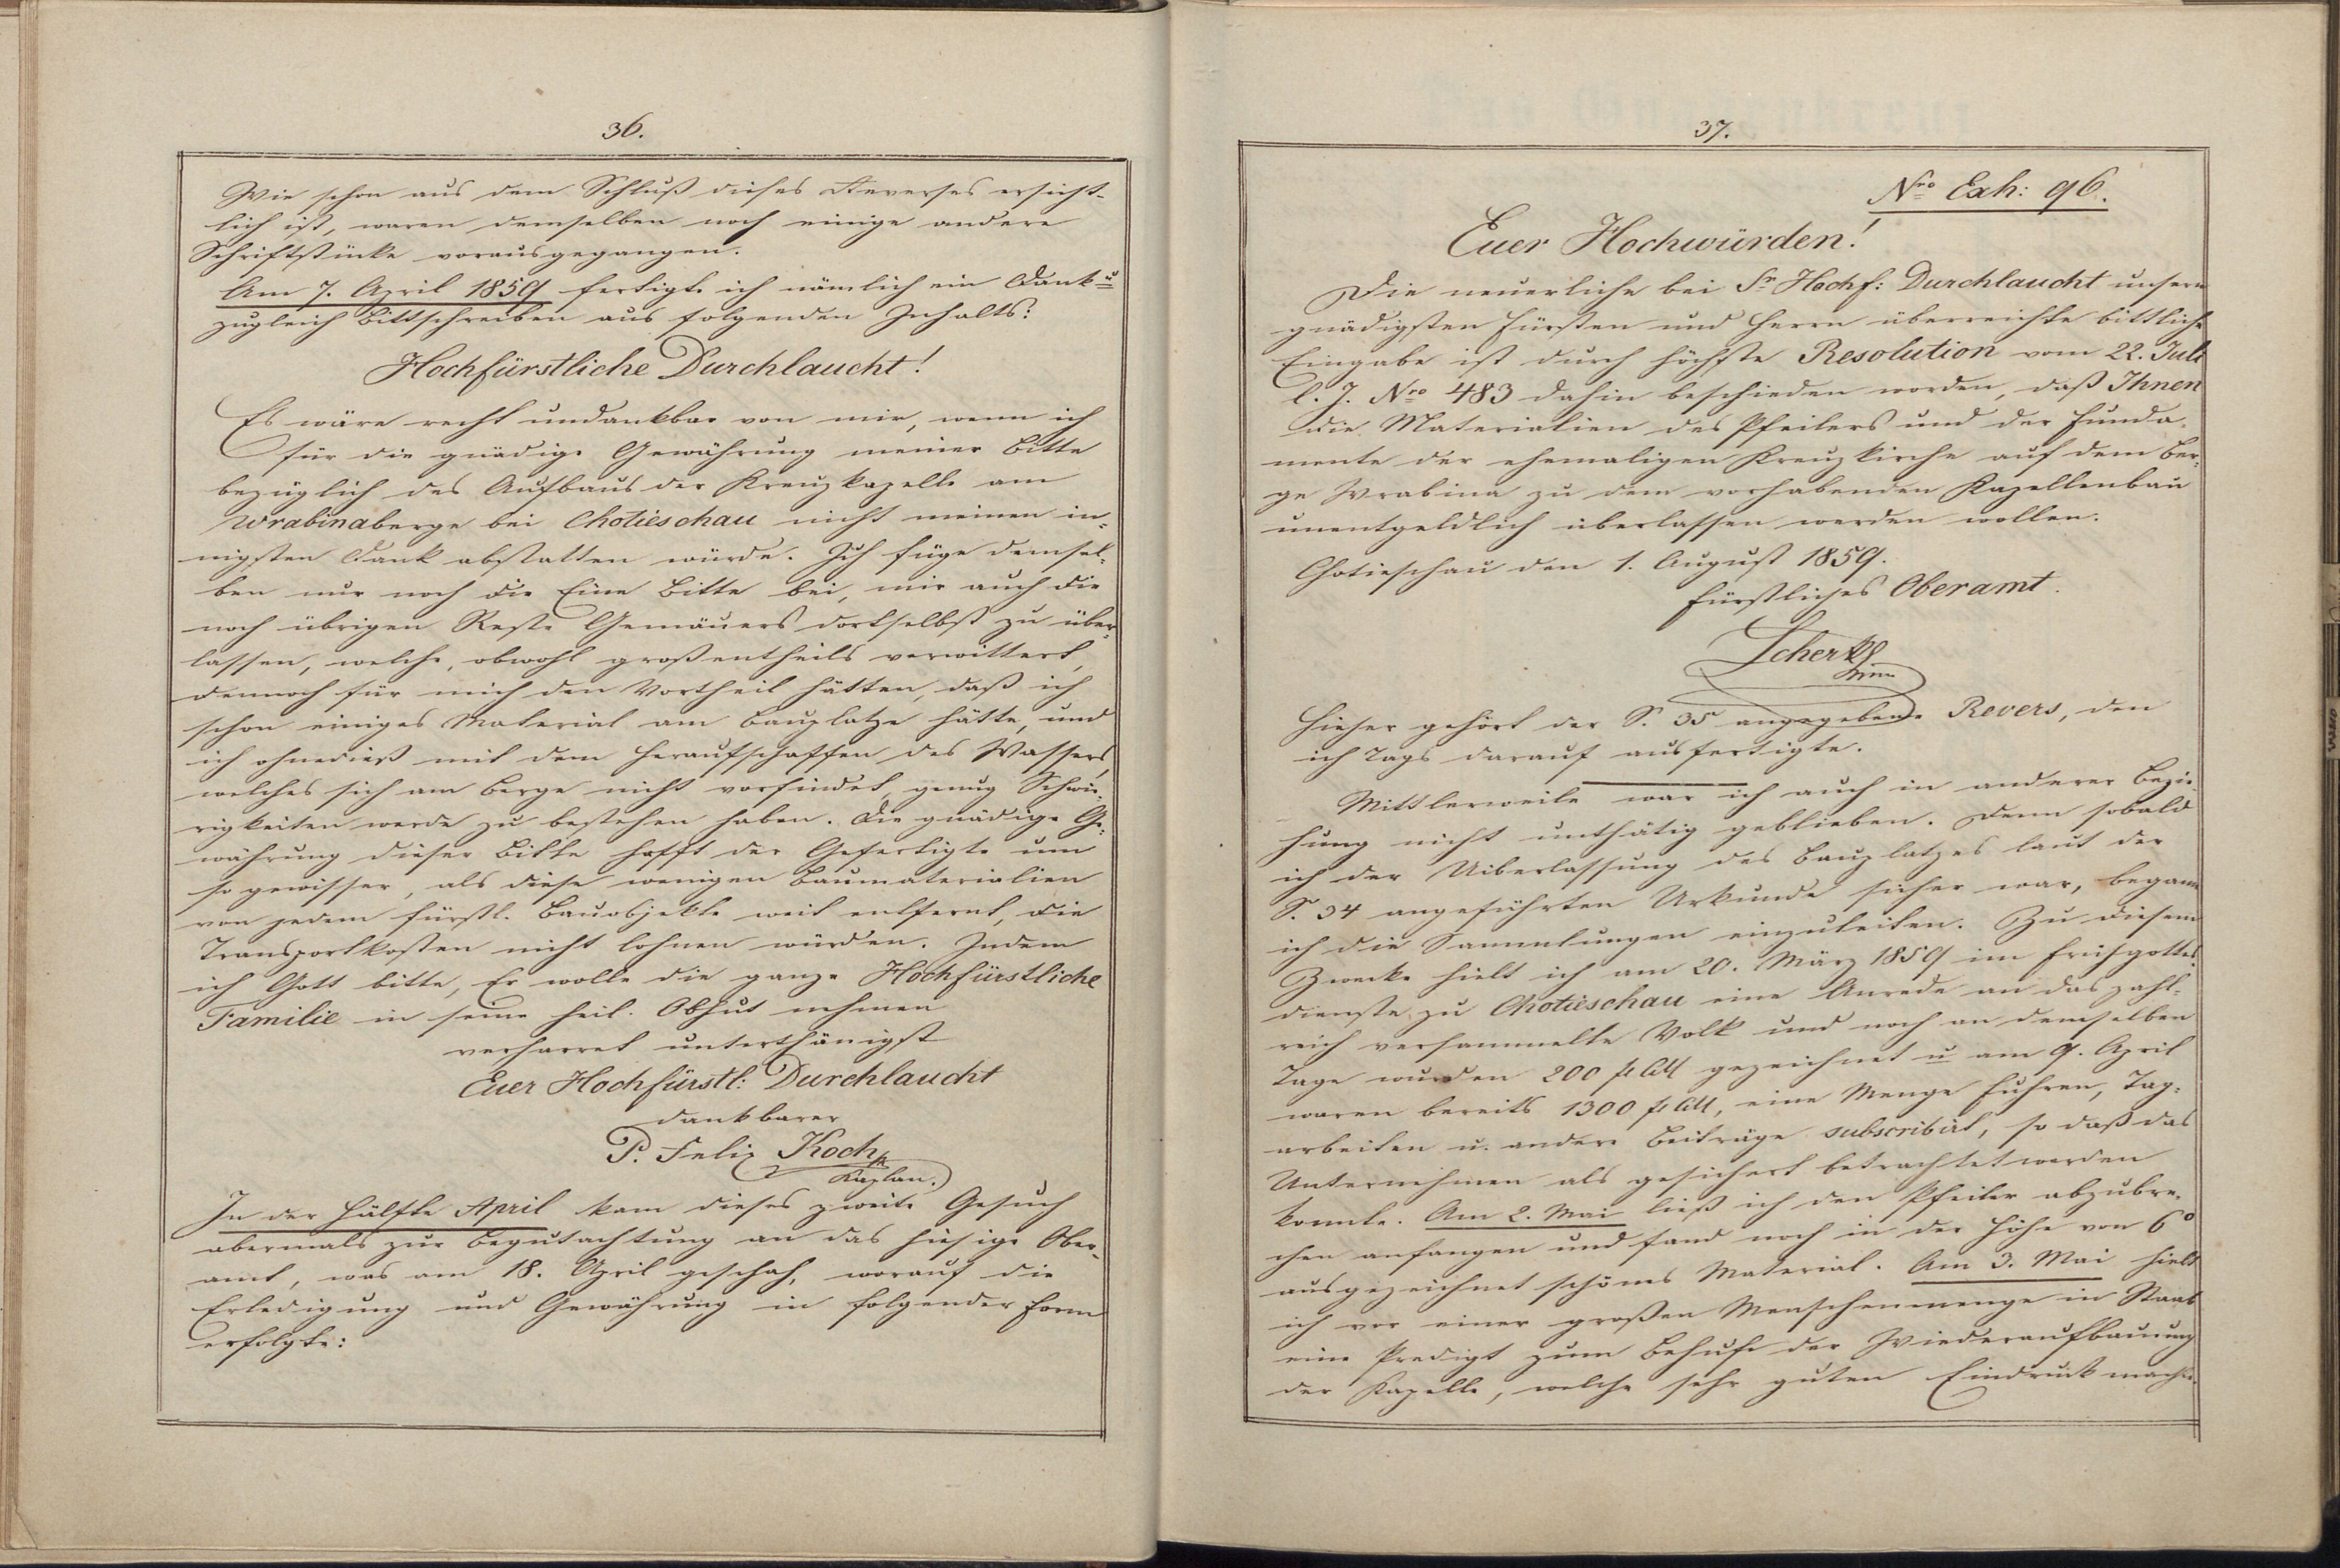 36.
Wie schon aus dem Schluß dieses Reverses ersicht-
lich ist, waren demselben noch einige andere
Schriftstücke vorausgegangen.
Am 7. April 1859 fertigte ich nämlich ein Dank u
zugleich Bittschreiben aus folgenden Inhalts:
Hochfürstliche Durchlaucht!
Es wäre recht undankbar von mir, wenn ich
für die gnädige Gewährung meiner Bitte
bezüglich des Aufbaus der Kreuzkapelle am
Wrabinaberge bei Chotieschau nicht meinen in-
nigsten Dank abstatten würde. Ich füge demsel-
ben nur noch die Eine Bitte bei, mir auch die
noch übrigen Reste Gemäuers dortselbst zu über-
lassen, welche, obwohl großentheils verwittert,
dennoch für mich den Vortheil hätten, daß ich
schon einiges Material am Bauplatze hätte, und
ich ohnedieß mit dem Heraufschaffen des Wassers,
welches sich am Berge nicht vorfindet, genug Schwie-
rigkeiten werde zu bestehen haben. Die gnädige Ge-
währung dieser Bitte hofft der Gefertigte um
so gewisser, als diese wenigen Baumaterialien
von jedem fürstl. Bauobjekte weit entfernt, die
Transportkosten nicht lohnen würden. Indem
ich Gott bitte, Er wolle die ganze Hochfürstliche
Familie in seine heil. Obhut nehmen
verharret unterthänigst
Euer Hochfürstl: Durchlaucht
dankbarer
P. Felix Koch
Kaplan.
In der Hälfte April kam dieses zweite Gesuch
abermals zur Begutachtung an das hiesige Ober-
amt, was am 18. April geschah, worauf die
Erledigung und Gewährung in folgender Form
erfolgte:
37.
Nro Exh: 96.
Euer Hochwürden!
Die neuerliche bei Sr Hochf: Durchlaucht unserm
gnädigsten Fürsten und Herrn überreichte bittliche
Eingabe ist durch höchste Resolution vom 22. Juli
l. J. Nro 483 dahin beschieden worden, daß Ihnen
die Materialien des Pfeilers und der Funda-
mente der ehemaligen Kreuzkirche auf dem Ber-
ge Wrabina zu dem vorhabenden Kapellenbau
unentgeldlich überlassen werden wollen.
Chotieschau den 1. August 1859.
Fürstliches Oberamt.
Scherks
Hieher gehört der S. 35 angegebene Revers, den
ich Tags darauf ausfertigte.
Mittlerweile war ich auch in anderer Bezie-
hung nicht unthätig geblieben. Denn sobald
ich der Uiberlassung des Bauplatzes laut der
S. 34 angeführten Urkunde sicher war, begann
ich die Sammlungen einzuleiten. Zu diesem
Zwecke hielt ich am 20. März 1859 im Frühgottes-
dienste zu Chotieschau eine Anrede an das zahl-
reich versammelte Volk und noch an demselben
Tage wurden 200 fl CM gezeichnet u am 9. April
waren bereits 1300 fl CM, eine Menge Fuhren, Tag-
arbeiten u. andere Beiträge subscribirt, so daß das
Unternehmen als gesichert betrachtet werden
konnte. Am 2. Mai ließ ich den Pfeiler abzubre-
chen anfangen und fand noch in der Höhe von 6°
ausgezeichnet schönes Material. Am 3. Mai hielt
ich vor einer großen Menschenmenge in Staab
eine Predigt zum Behufe der Wiederaufbauung
der Kapelle, welche sehr guten Eindruck machte.